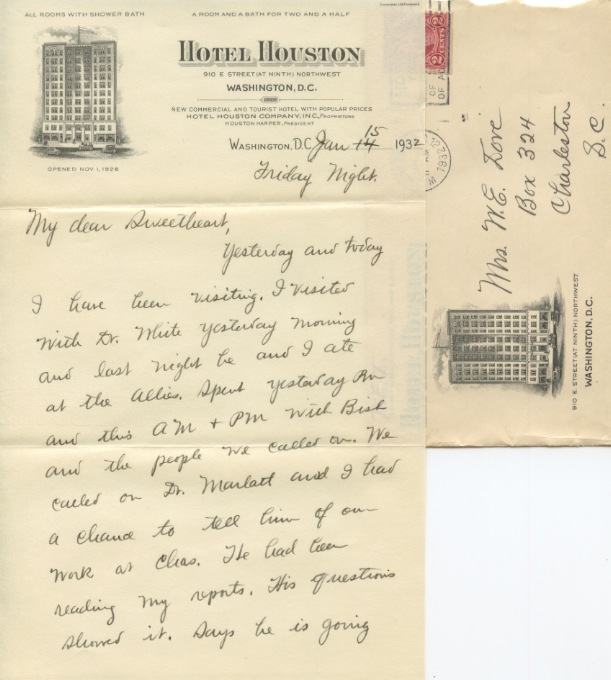 ALL ROOMS WITH SHOWER BATH
A ROOM AND A BATH FOR TWO AND A HALF
HOTEL HOUSTON
910 E STREET (AT NINTH) NORTHWEST
WASHINGTON, D.C.
NEW COMMERCIAL AND TOURIST HOTEL WITH POPULAR PRICES
HOTEL HOUSTON COMPANY, INC., PROPRIETORS
HOUSTON HARPER, PRESIDENT
OPENED NOV 1, 1926
15
WASHINGTON, D.C. Jan 14 1932
Friday Night.
My dear Sweetheart,
Yesterday and today
I have been visiting. I visited
with Dr. White yesterday morning
and last night he and I ate
at the Allies. Spent yesterday PM
and this AM + PM with Bish
and the people we called on. We
called on Dr. Marlatt and I had
a chance to tell him of our
work at Chas. He had been
reading my reports. His questions
showed it. Says he is going
2 CENTS 2
1932
Mrs. W.E. Dove
Box 324
Charleston
S.C.
910 E STREET (AT NINTH) NORTHWEST
WASHINGTON, D.C.